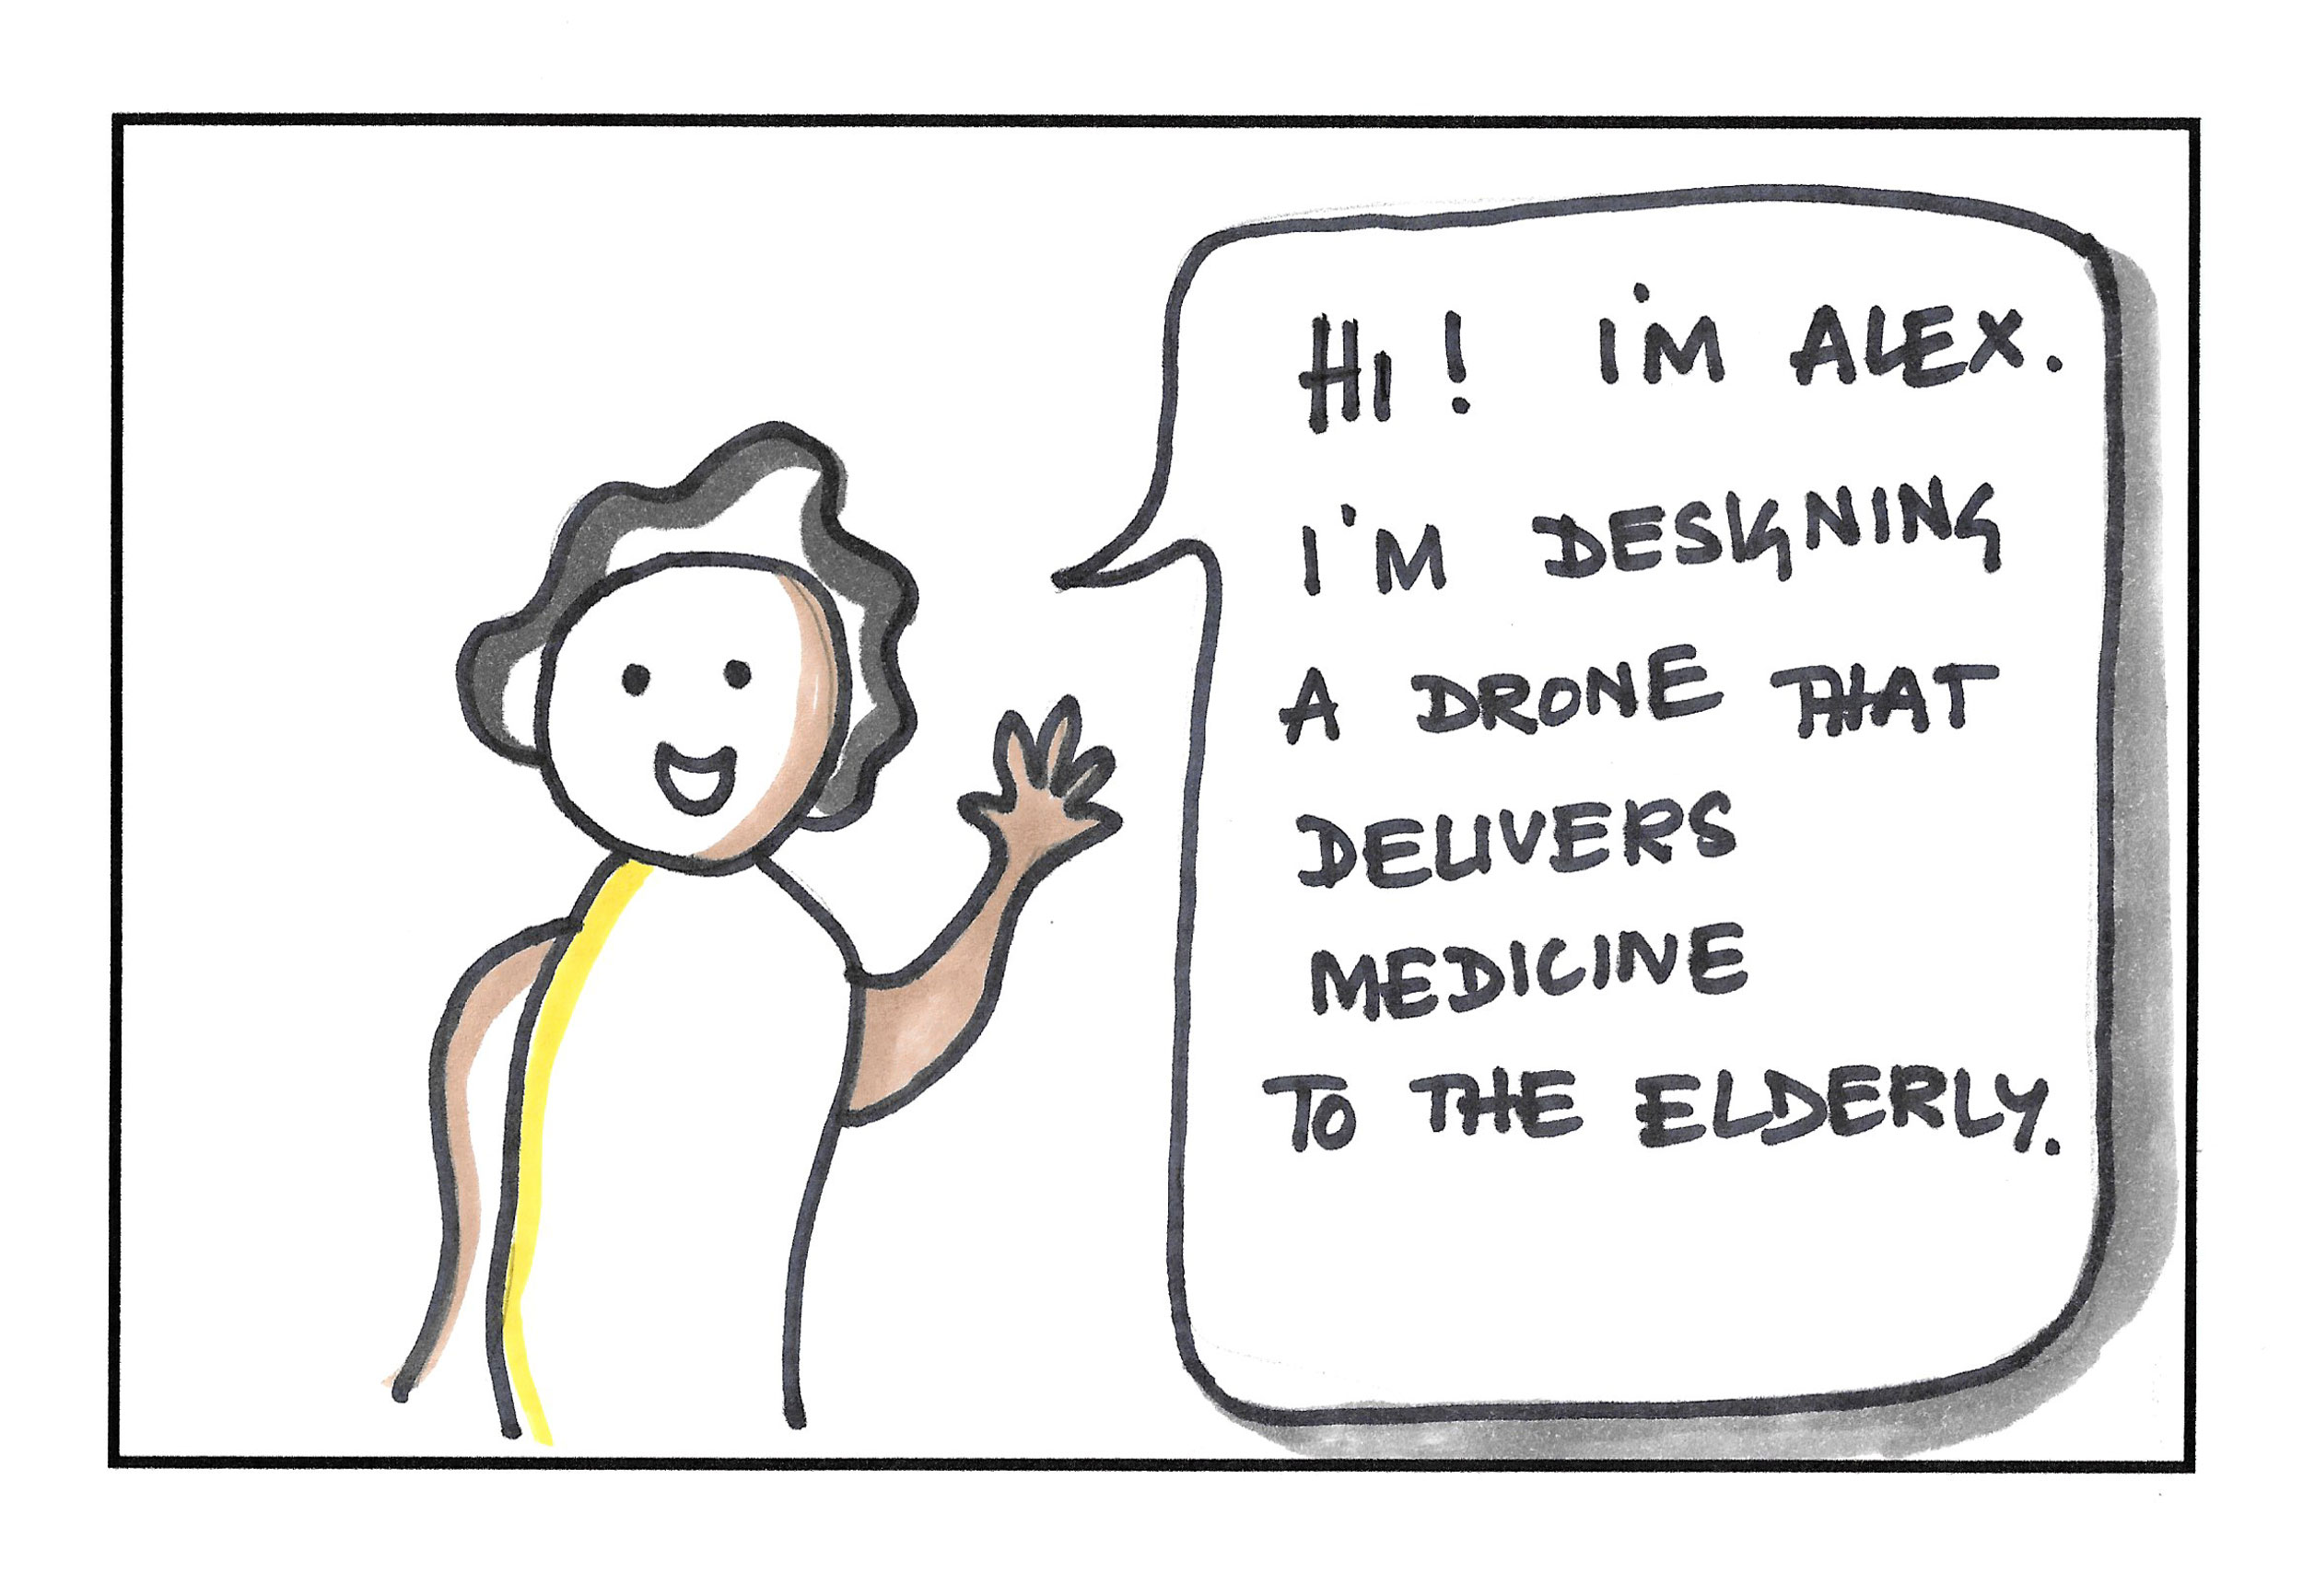 HI! I'M ALEX.
I'M DESIGNING
A DRONE THAT
DELIVERS
MEDICINE
TO THE ELDERLY.